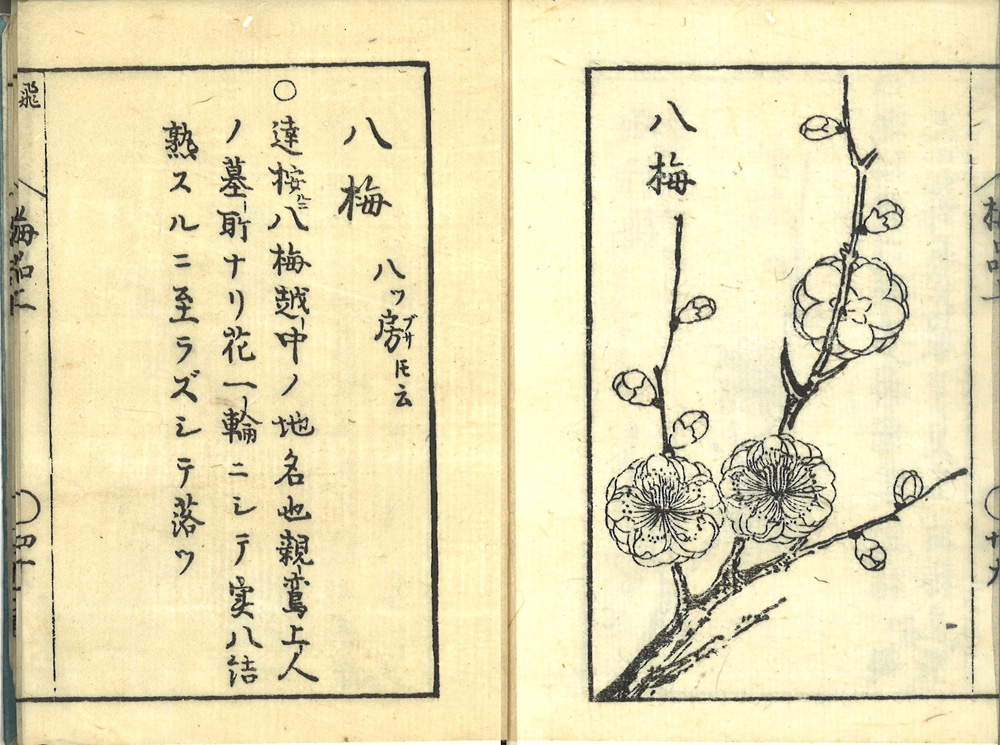 八梅
八梅
八ツ房ブサ𪜈云
○達按ニ八梅越中ノ地名也親鸞上人
ノ墓所ナリ花一輪ニシテ実八結
熟スルニ至ラズシテ落ツ
飛